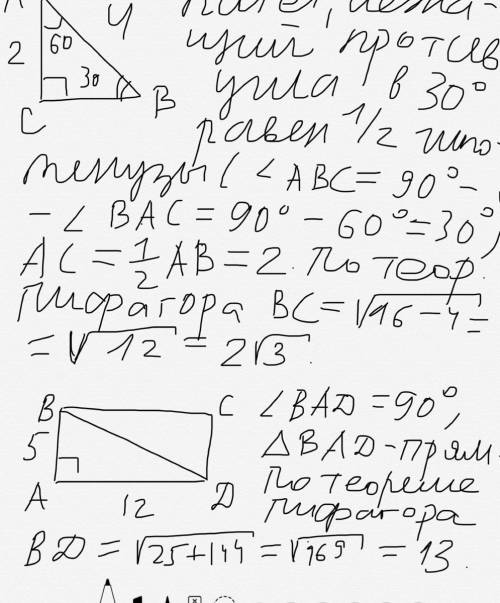 4 катет, лежа-
2 60 щий против
30 угла в 30°
C B равен 1/2 гипо-
тенузы (∠ABC = 90° -
- ∠BAC = 90° - 60° = 30°,
AC = 1/2 AB = 2. По теор.
Пифагора BC = √16 - 4 =
= √12 = 2√3.
B C ∠BAD = 90°,
5 △BAD - прям.
A D По теореме
12 Пифагора
BD = √25+144 = √169 = 13.